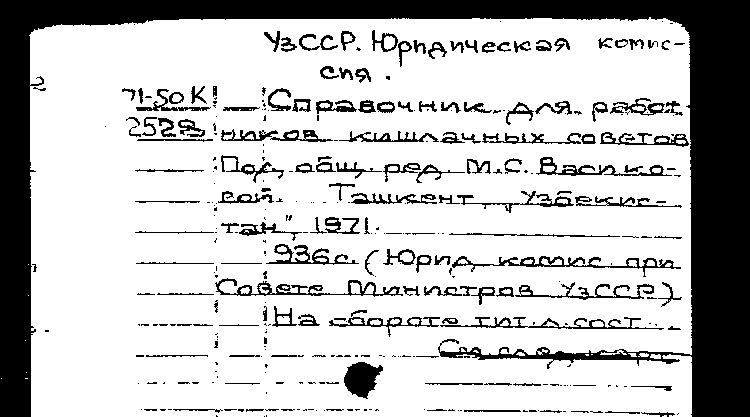 УзССР. Юридическая комис-
сия.
71-50К — Справочник для работ-
2528 ников кишлачных советов
Под общ. ред. М.С. Васико-
вой. Ташкент, „Узбекис-
тан", 1971.
936с. (Юрид. комис при
Совете Министров УзССР)
На обороте тит.л.сост...
См.след.карт